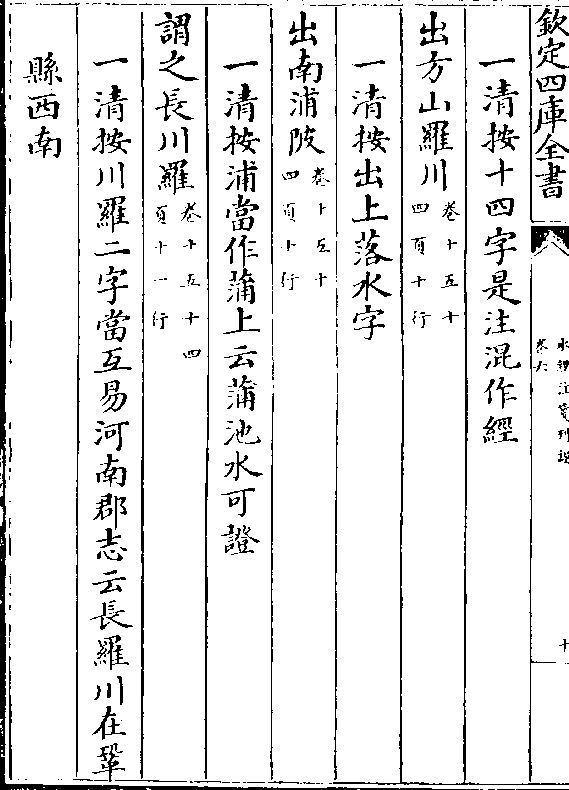 欽定四庫全書
水經注箋刊誤
卷六
十
一清按十四字是注混作經
出方山羅川卷十五十四頁十行
一清按出上落水字
出南浦陂卷十五十四頁十行
一清按浦當作蒲上云蒲池水可證
謂之長川羅卷十五十四頁十一行
一清按川羅二字當互易河南郡志云長羅川在鞏
縣西南